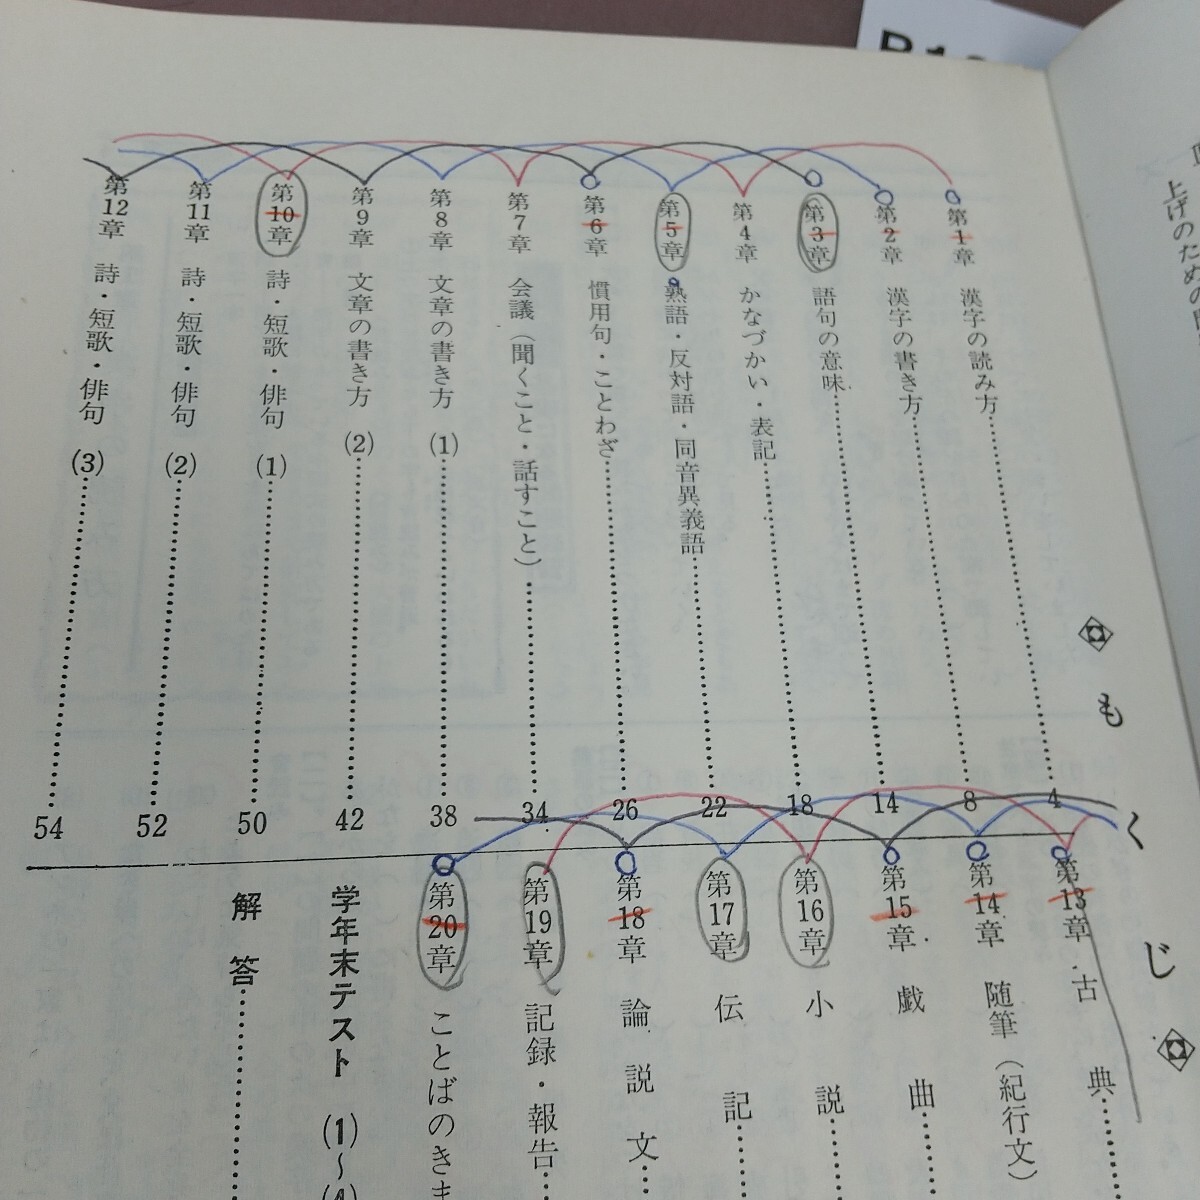 上げのための
もくじ
第1章 漢字の読み方 4
第2章 漢字の書き方 8
第3章 語句の意味 14
第4章 かなづかい・表記 18
第5章 熟語・反対語・同音異義語 22
第6章 慣用句・ことわざ 26
第7章 会議(聞くこと・話すこと) 34
第8章 文章の書き方 (1) 38
第9章 文章の書き方 (2) 42
第10章 詩・短歌・俳句 (1) 50
第11章 詩・短歌・俳句 (2) 52
第12章 詩・短歌・俳句 (3) 54
第13章 古典
第14章 随筆(紀行文)
第15章 戯曲
第16章 小説
第17章 伝記
第18章 論説文
第19章 記録・報告
第20章 ことばのきま
学年末テスト (1)〜
解答